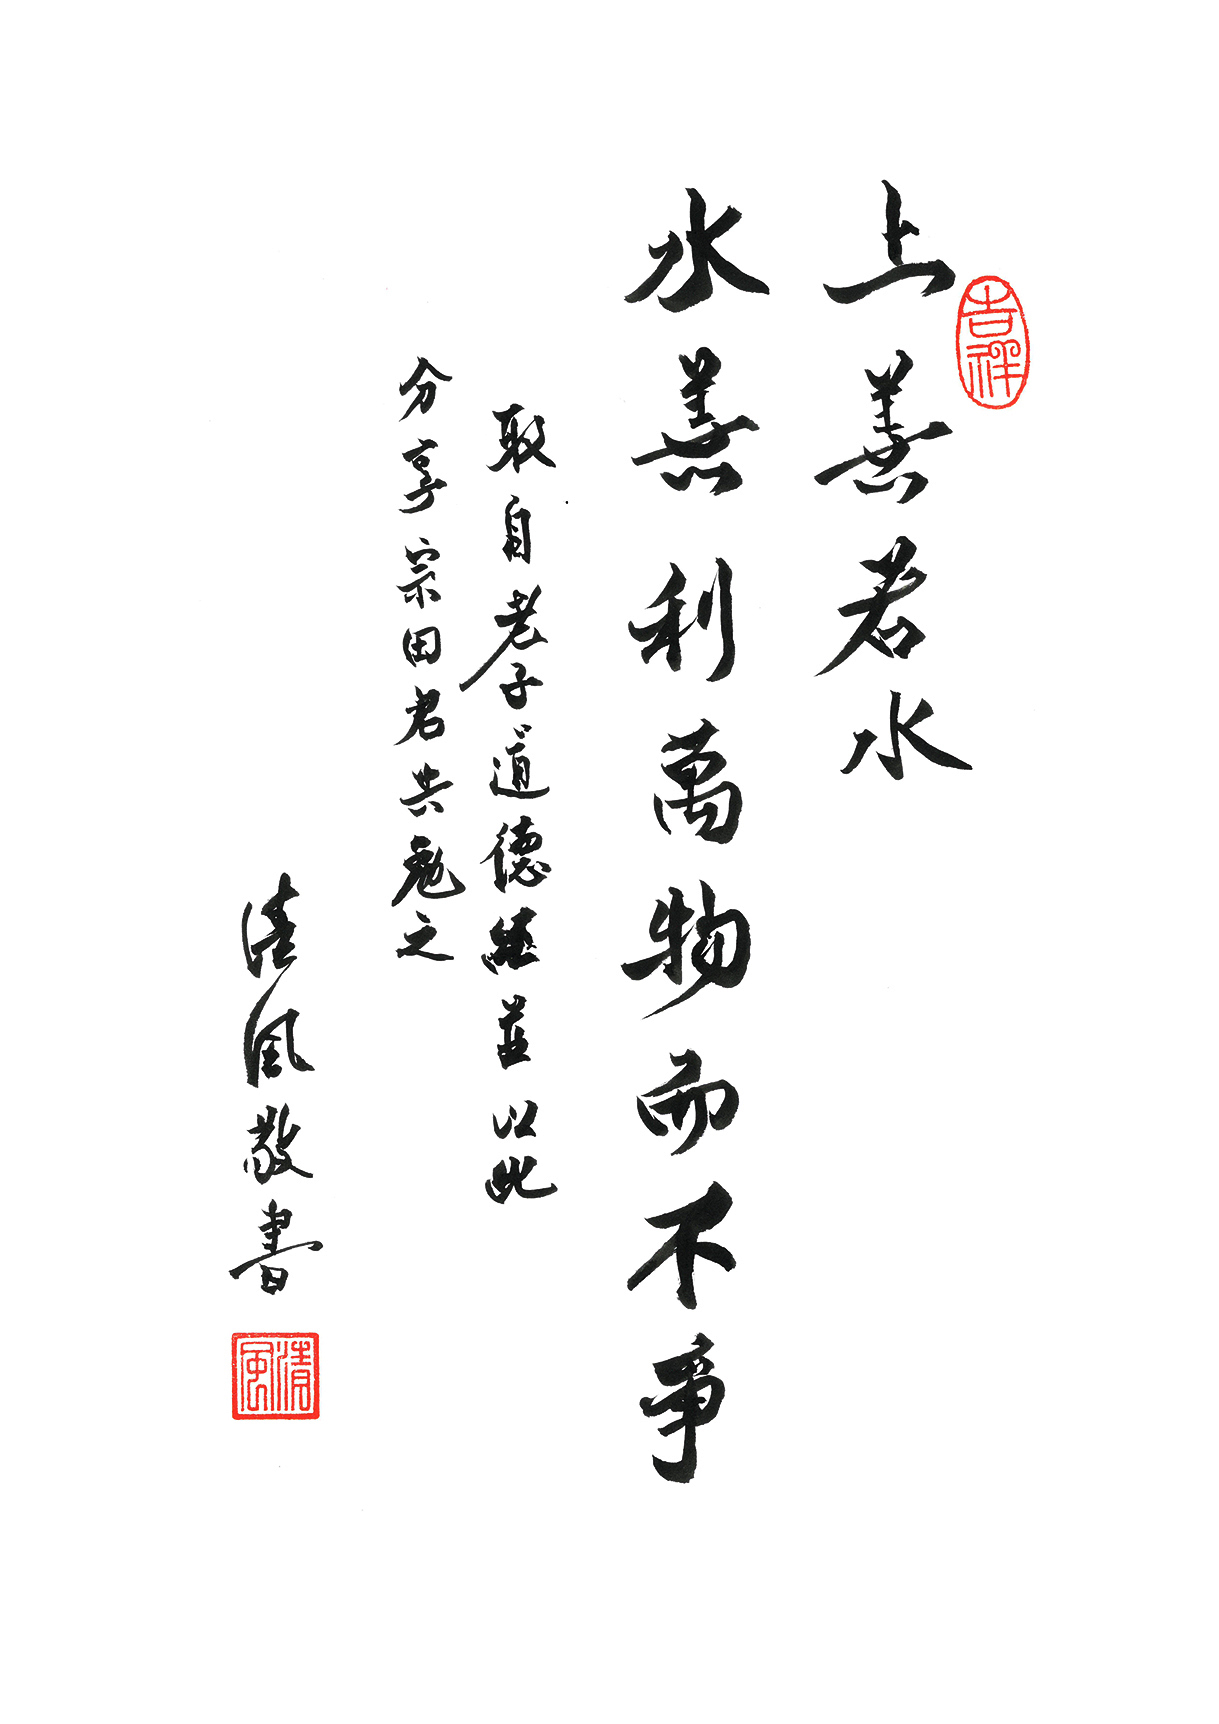 吉祥
上善若水
水善利萬物而不爭
取自老子道德經並以此
分享宗田君共勉之
清風敬書
清風